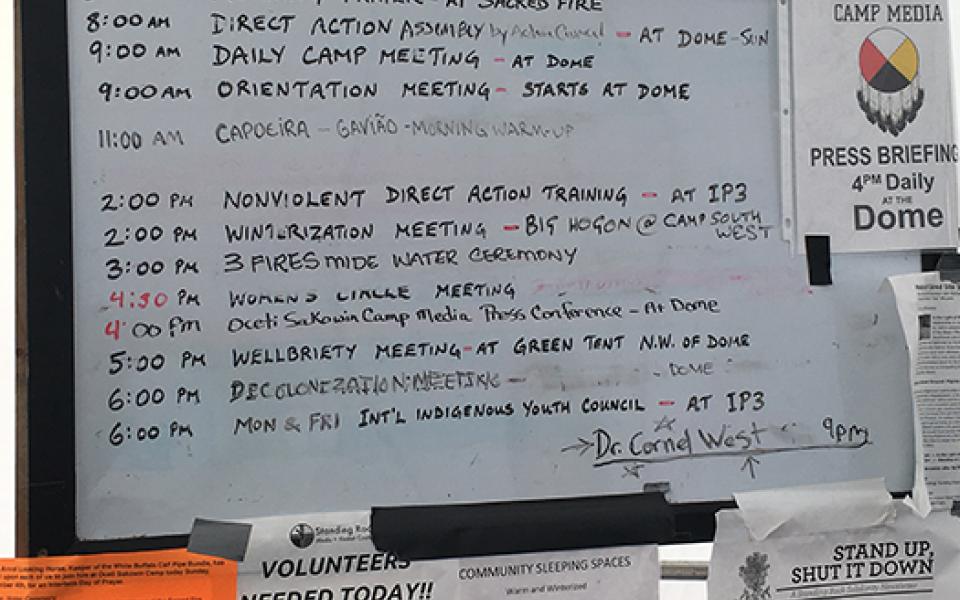 AT SACRED FIRE
8:00 AM DIRECT ACTION ASSEMBLY by Action Council - AT DOME - SUN
9:00 AM DAILY CAMP MEETING - AT DOME
9:00 AM ORIENTATION MEETING - STARTS AT DOME
11:00 AM CAPOEIRA - GAVIÃO - MORNING WARM-UP
2:00 PM NONVIOLENT DIRECT ACTION TRAINING - AT IP3
2:00 PM WINTERIZATION MEETING - BIG HOGON @ CAMP SOUTH
WEST
3:00 PM 3 FIRES MIDE WATER CEREMONY
4:30 PM WOMEN'S CIRCLE MEETING
4:00 Pm Oceti Sakowin Camp Media Press Conference - At Dome
5:00 PM WELLBRIETY MEETING - AT GREEN TENT N.W. OF DOME
6:00 PM DECOLONIZATION MEETING - - DOME
6:00 PM MON & FRI INT'L INDIGENOUS YOUTH COUNCIL - AT IP3
→ Dr. Cornel West 9pm
CAMP MEDIA
PRESS BRIEFING
4PM Daily
AT THE
Dome
Standing Roc
VOLUNTEERS
NEEDED TODAY!!
COMMUNITY SLEEPING SPACES
Warm and Winterized
STAND UP,
SHUT IT DOWN
A Standing Rock Solidarity Newsletter